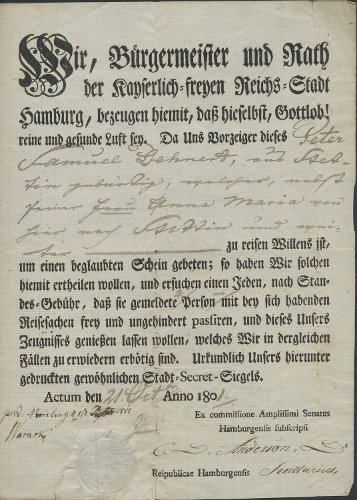 Wir, Bürgermeister und Rath
der Kayserlich-freyen Reichs-Stadt
Hamburg, bezeugen hiemit, daß hieselbst, Gottlob!
reine und gesunde Luft sey. Da Uns Vorzeiger dieses Peter
Samuel Dehnert, aus Stet-
tin gebürtig, welcher, nebst
seiner Frau Anna Maria von
hier nach Stettin und wei-
ter zu reisen Willens ist,
um einen beglaubten Schein gebeten; so haben Wir solchen
hiemit ertheilen wollen, und ersuchen einen Jeden, nach Stan-
des-Gebühr, daß sie gemeldete Person mit bey sich habenden
Reisesachen frey und ungehindert passiren, und dieses Unsers
Zeugnisses genießen lassen wollen, welches Wir in dergleichen
Fällen zu erwiedern erbötig sind. Urkundlich Unsers hierunter
gedruckten gewöhnlichen Stadt-Secret-Siegels.
Actum den 21 Oct Anno 1801.
Ex commissione Amplissimi Senatus
Hamburgensis subscripsi
Anderson
Reipublicae Hamburgensis Secretarius